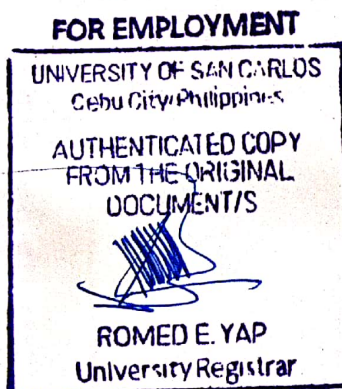 FOR EMPLOYMENT
UNIVERSITY OF SAN CARLOS
Cebu City, Philippines
AUTHENTICATED COPY
FROM THE ORIGINAL
DOCUMENT/S
ROMED E. YAP
University Registrar